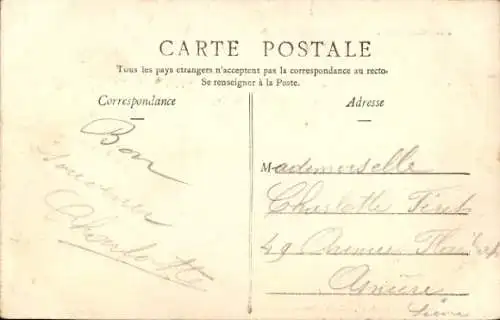 CARTE POSTALE
Tous les pays etrangers n'acceptent pas la correspondance au recto-
Se renseigner à la Poste.
Correspondance
Adresse
Bon
Souvenir
Charlotte
Mademoiselle
Charlotte
49
Asnière
Seine